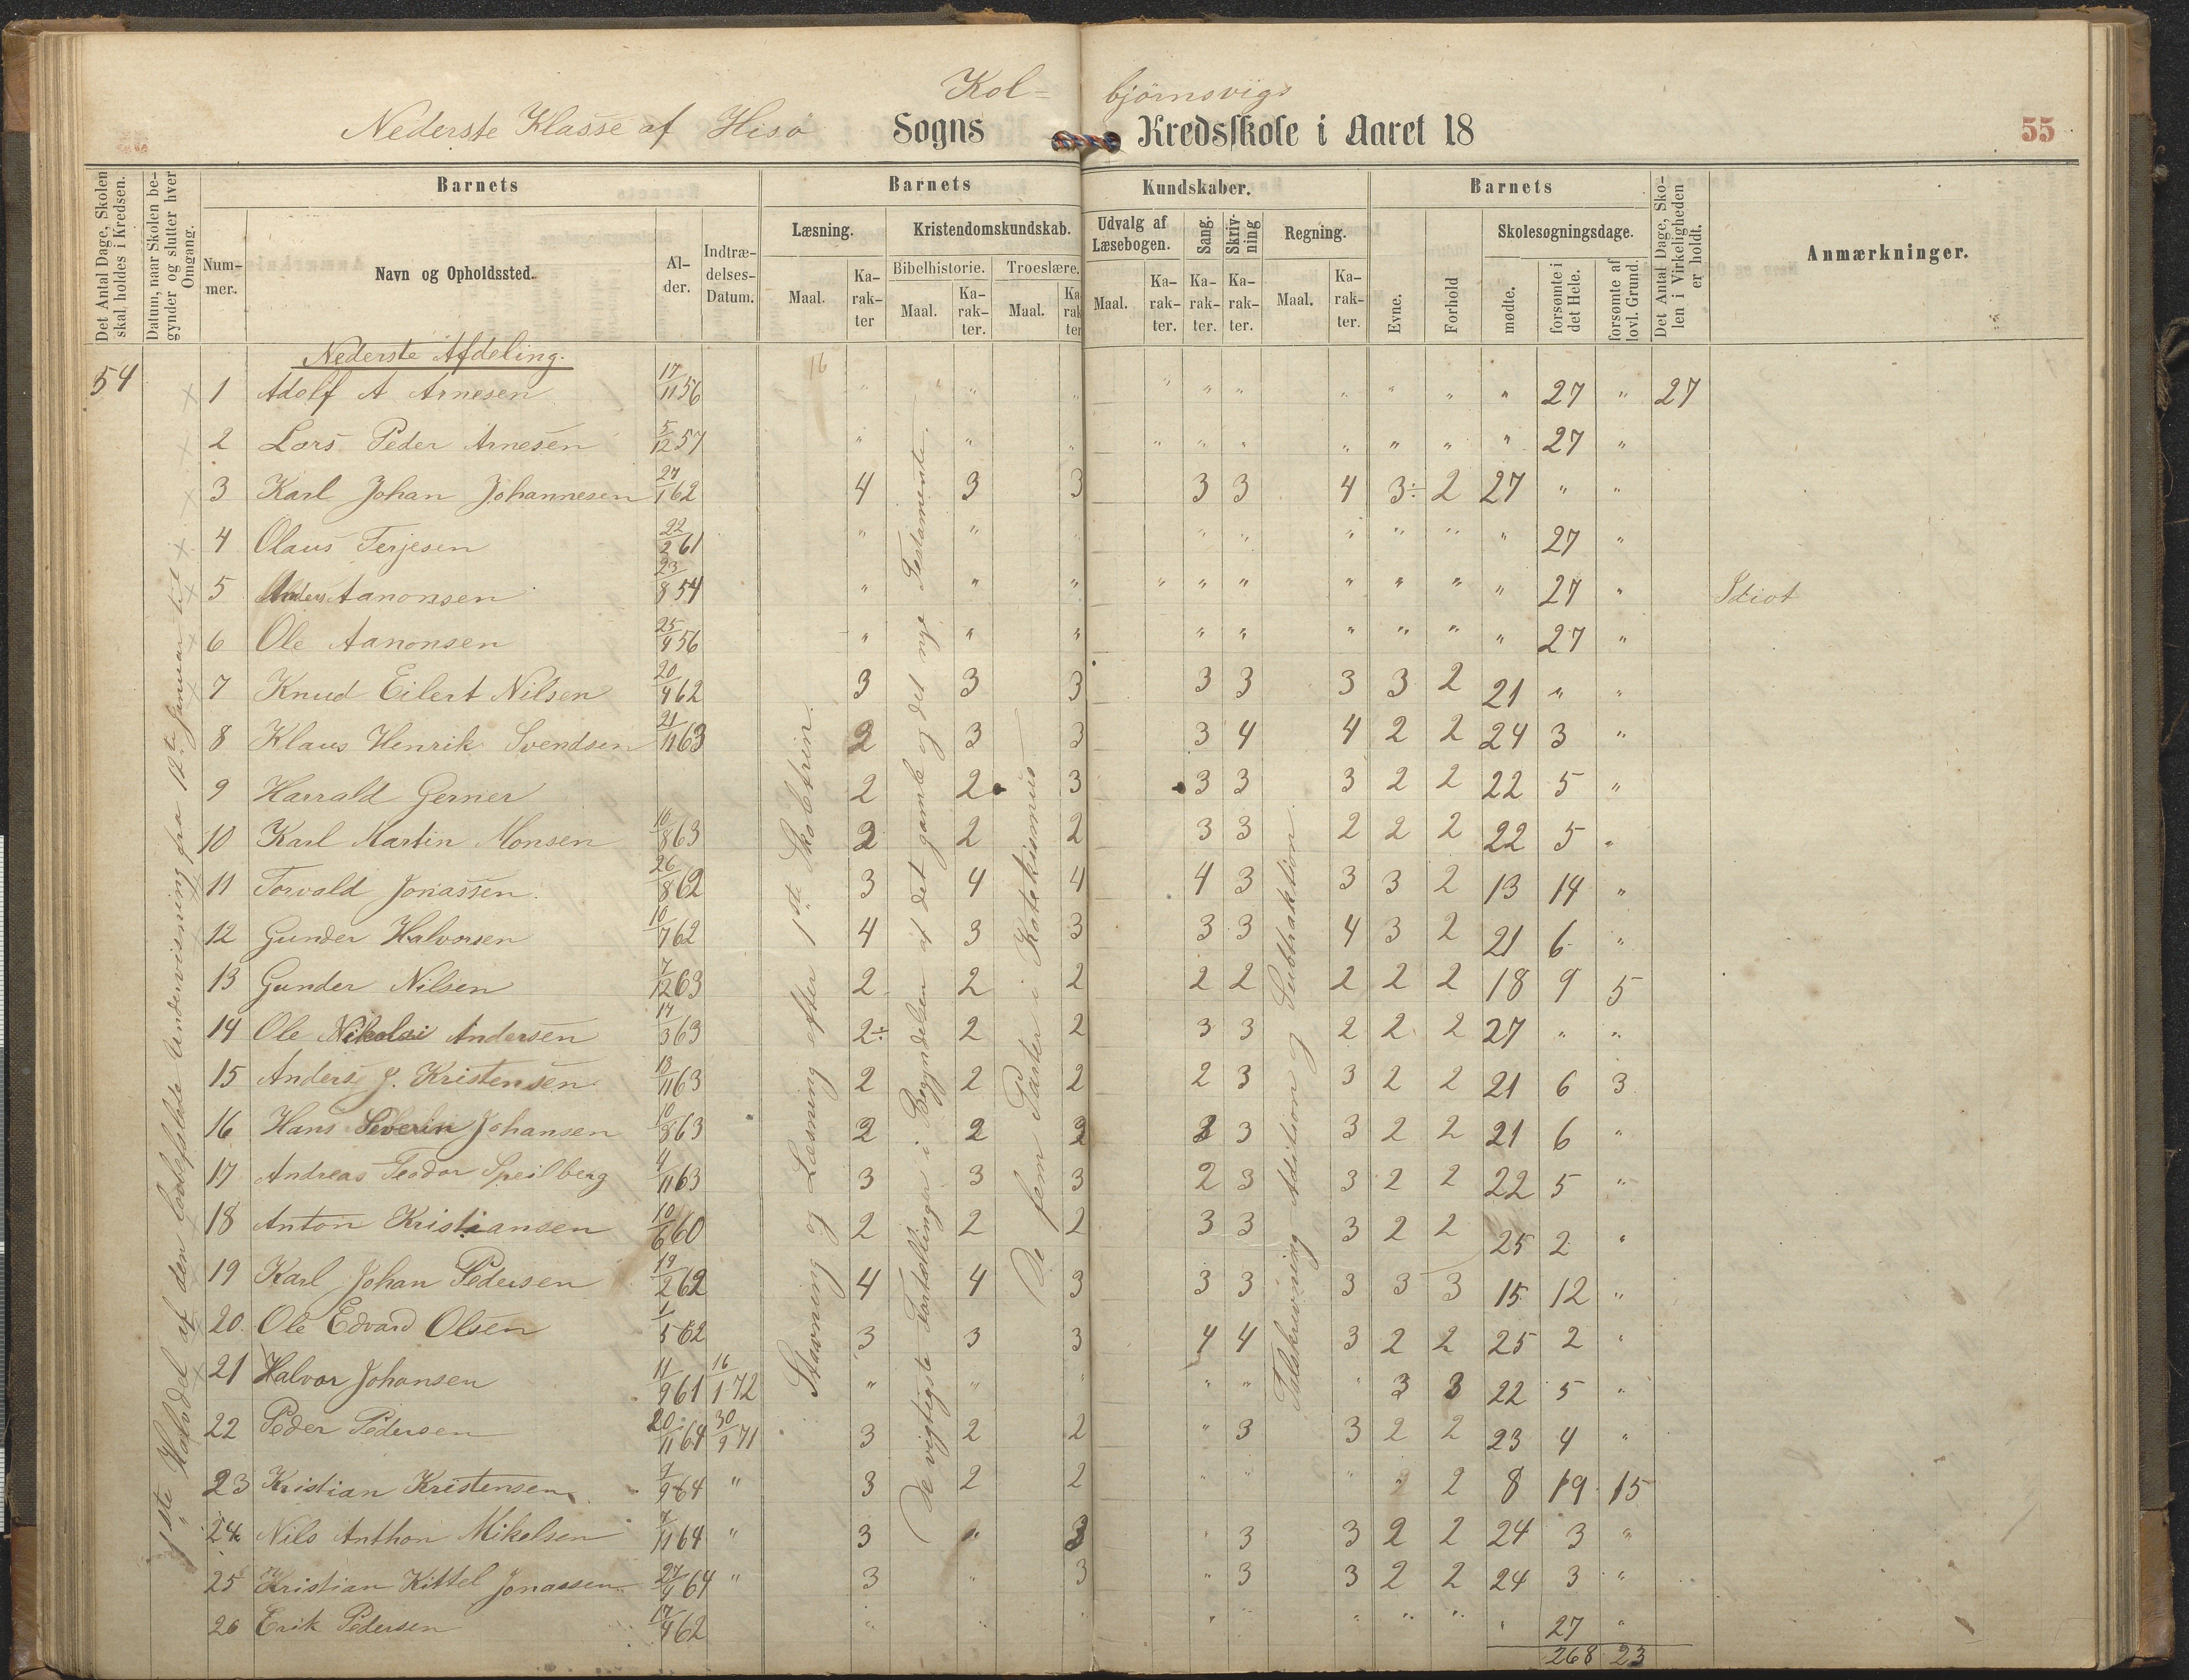 Kol= bjørnsvigs
Nederste Klasse af Hisø Sogns Kredsskole i Aaret 18 55
Det Antal Dage, Skolen skal holdes i Kredsen.
Datum, naar Skolen begynder og slutter hver Omgang.
Barnets Barnets Kundskaber. Barnets
Det Antal Dage, Skolen i Virkeligheden er holdt.
Anmærkninger.
Nummer. Navn og Opholdssted. Alder. Indtrædelses-Datum.
Læsning. Kristendomskundskab. Udvalg af Læsebogen. Sang. Skrivning Regning. Evne. Forhold Skolesøgningsdage.
Maal. Karakter Bibelhistorie. Troeslære.
Maal. Karakter. Maal. Karakter Maal. Karakter. Karakter. Karakter. Maal. Karakter. mødte. forsømte i det Hele. forsømte af lovl. Grund.
Nederste Afdeling.
54 1 Adolf A Arnesen 17/11 56 " " " " " " " " " " 27 " 27
2 Lars Peder Arnesen 5/12 57 " " " " " " " " " " 27 "
3 Karl Johan Johannesen 27/1 62 4 3 3 3 3 4 3÷ 2 27 " "
4 Olaus Terjesen 22/2 61 " " " " " " " " " 27 "
5 Anders Aanonsen 23/8 54 " " " " " " " " " " 27 " Idiot
6 Ole Aanonsen 25/9 56 " " " " " " " " " 27 "
7 Knud Eilert Nilsen 20/9 62 3 3 3 3 3 3 3 2 21 " "
8 Klaus Henrik Svendsen 21/11 63 2 3 3 3 4 4 2 2 24 3 "
9 Harrald Gerner 2 2 3 3 3 3 2 2 22 5 "
10 Karl Martin Monsen 10/8 63 2 2 2 3 3 2 2 2 22 5 "
11 Torvald Jonassen. 26/8 62 3 4 4 4 3 3 3 2 13 14 "
12 Gunder Halvorsen 10/7 62 4 3 3 3 3 4 3 2 21 6 "
13 Gunder Nilsen 7/12 63 2 2 2 2 2 2 2 2 18 9 5
14 Ole Nikolai Andersen 14/3 63 2÷ 2 2 3 3 2 2 2 27 " "
15 Anders J. Kristensen 13/11 63 2 2 2 2 3 3 2 2 21 6 3
16 Hans Severin Johansen 10/8 63 2 2 2 2 3 3 2 2 21 6 "
17 Andreas Teodor Speilberg 4/11 63 3 3 3 2 3 3 2 2 22 5 "
18 Anton Kristiansen 10/6 60 2 2 2 3 3 3 2 2 25 2 "
19 Karl Johan Pedersen 19/2 62 4 4 3 3 3 3 3 3 15 12 "
20. Ole Edvard Olsen 1/5 62 3 3 3 4 4 3 2 2 25 2 "
21 Halvor Johansen 11/9 61 16/1 72 " " " " " " 3 3 22 5 "
22 Peder Pedersen 20/11 64 30/9 71 3 2 2 " 3 3 2 2 23 4 "
23 Kristian Kristensen 9/9 64 " 3 2 2 " " " " 2 8 19 15
24 Nils Anthon Mikelsen 7/11 64 " 3 " 3 " 3 3 2 2 24 3 "
25 Kristian Kittel Jonassen 27/9 64 " 3 " 3 " 3 3 2 2 24 3 "
26 Erik Pedersen 17/9 62 " " " " " " " " " 27 "
268 23
1ste Halvdel af den lovbefalede Undervisning fra 12te Januar til
Stavning og Læsning efter 1ste Skoletrin.
De vigtigste Fortællinger i Begyndelsen af det gamle og det nye Testamente.
De fem Parter i Katekismus
Talskrivning Adition og Subtraktion.